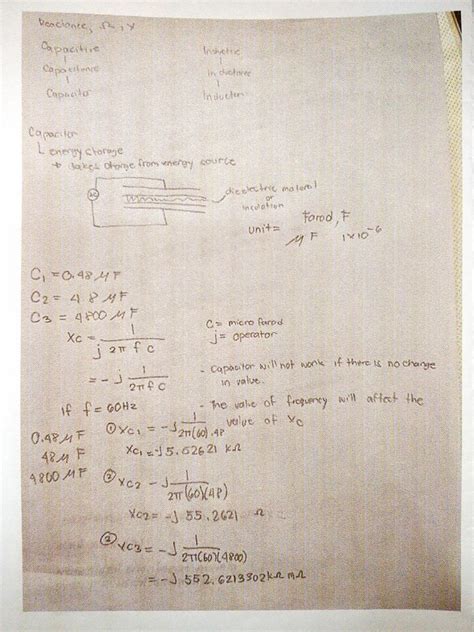 Reactance, Ω, X
Capacitive Inductive
Capacitance Inductance
Capacitor Inductor
Capacitor
L energy storage
→ takes charge from energy source
AC
dielectric material
or
insulation
unit = Farad, F
μF 1x10⁻⁶
C₁ = 0.48 μF
C₂ = 48 μF
C₃ = 4800 μF
Xc = 1 / j 2π f C
C = micro farad
j = operator
= -j 1 / 2π f C
- Capacitor will not work if there is no change
in value.
If f = 60Hz
- The value of frequency will affect the
value of Xc
0.48 μF
48 μF
4800 μF
① Xc₁ = -j 1 / 2π(60).48
Xc₁ = -j 5.52621 kΩ
② Xc₂ -j 1 / 2π(60)(48)
Xc₂ = -j 55.2621 Ω
③ Xc₃ = -j 1 / 2π(60)(4800)
= -j 552.6213302 kΩ mΩ